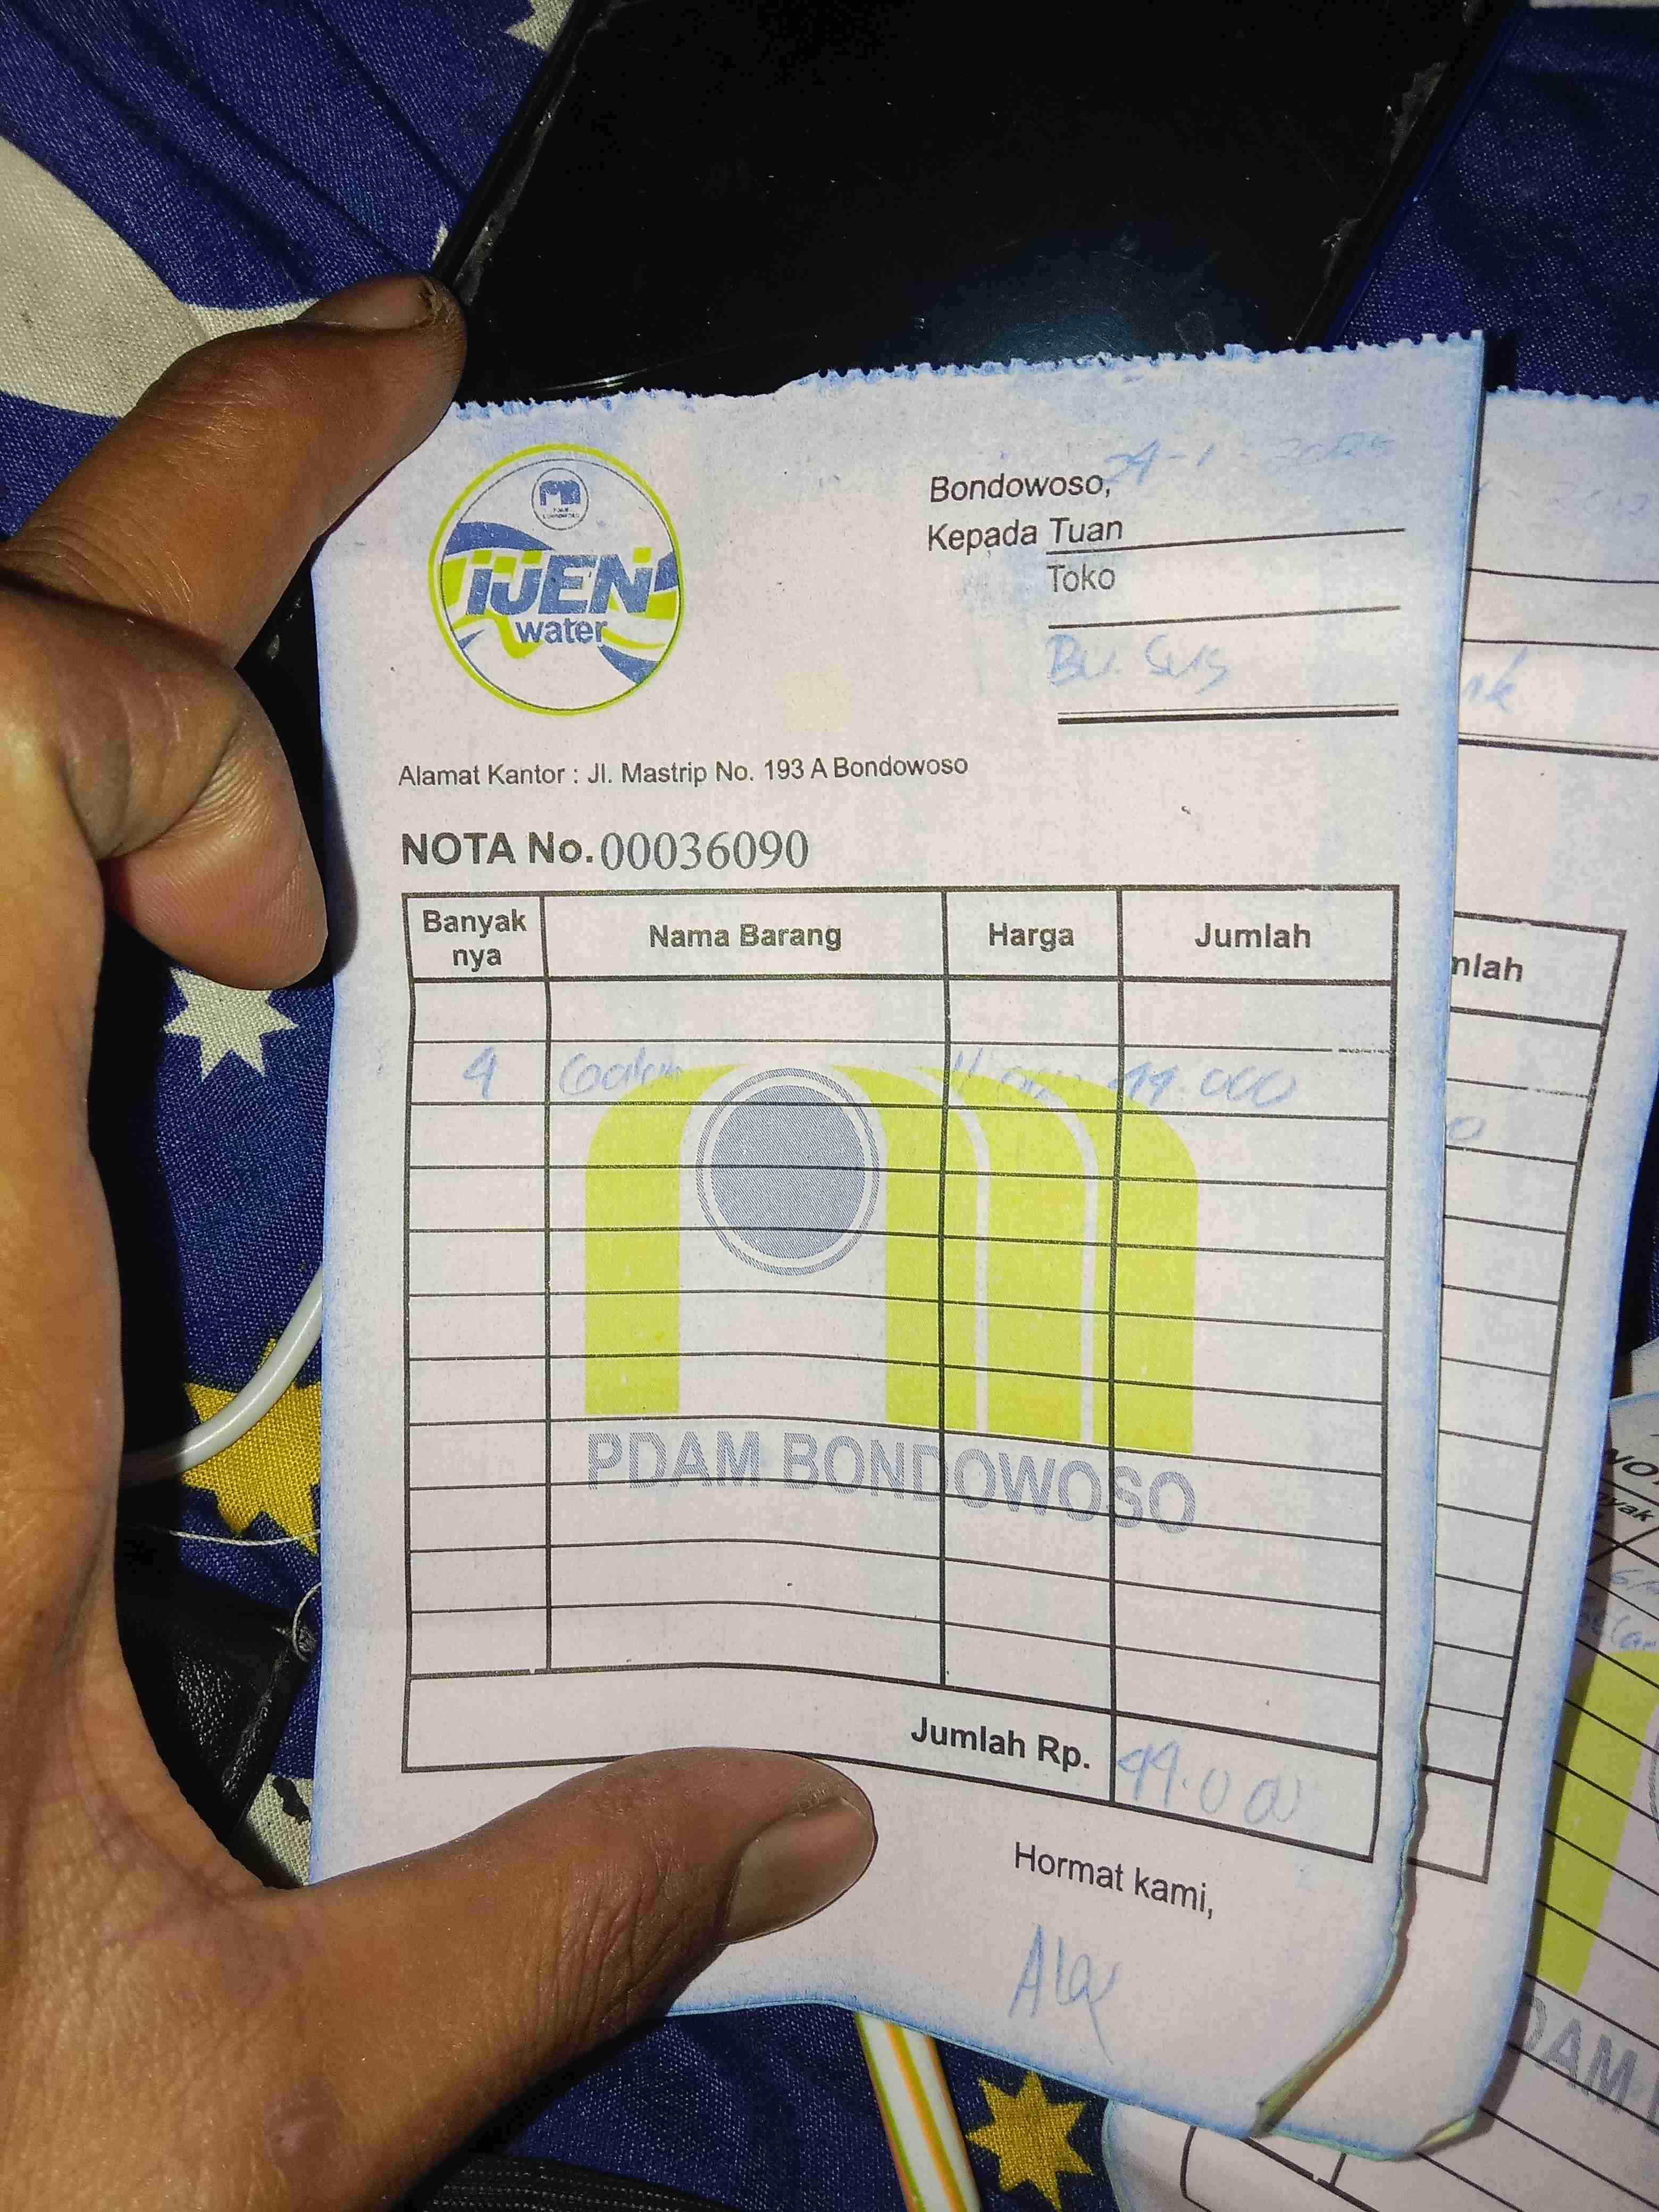 IJEN
water
Bondowoso,
Kepada Tuan
Toko
Bu. Sus
Alamat Kantor : Jl. Mastrip No. 193 A Bondowoso
NOTA No. 00036090
Banyak nya Nama Barang Harga Jumlah
4 Galon 11.000 44.000
PDAM BONDOWOSO
Jumlah Rp. 44.000
Hormat kami,
mlah